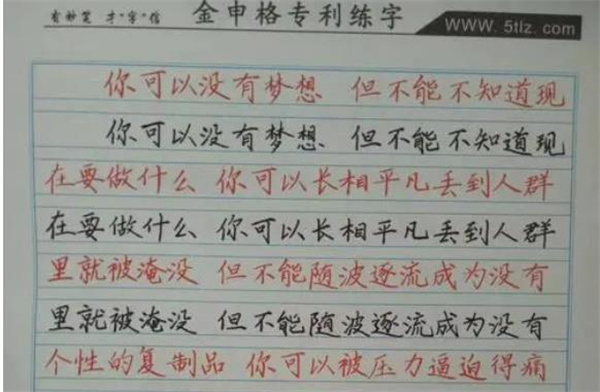 有妙笔 才“字”信 金申格专利练字 www.5tlz.com
你可以没有梦想 但不能不知道现
你可以没有梦想 但不能不知道现
在要做什么 你可以长相平凡丢到人群
在要做什么 你可以长相平凡丢到人群
里就被淹没 但不能随波逐流成为没有
里就被淹没 但不能随波逐流成为没有
个性的复制品 你可以被压力逼迫得痛